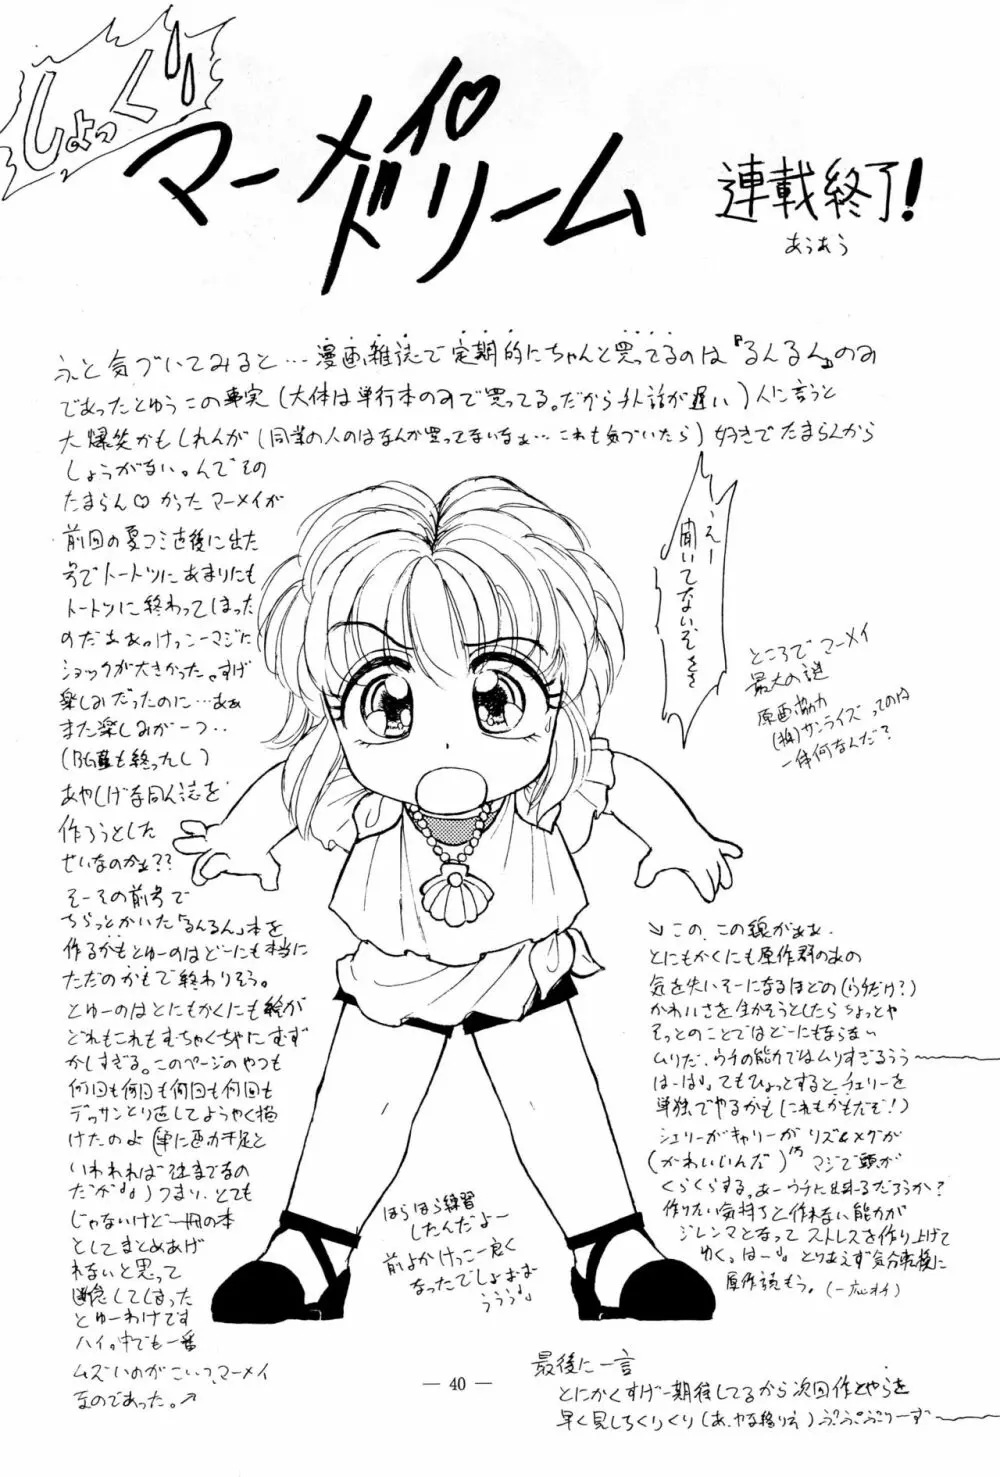 しょっくり
マーメイド♡リーム
連載終了!
あうあう
ふと気づいてみると…漫画雑誌で定期的にちゃんと買ってるのは『るんるん』のみ
であったとゆうこの事実(大体は単行本のみで買ってる。だからチト話が遅い)人に言うと
大爆笑かもしれんが(同業の人のはなんか買ってないなぁ…これも気づいたら)好きでたまらんから
しょうがない。んでその
たまらん♡かったマーメイが
前回の夏コミ直後に出た
号でトートツにあまりにも
トートツに終わってしまった
のだぁあぁっけっこーマジに
ショックが大きかった。すげ
楽しみだったのに…あぁ
また楽しみが一つ‥
も終ったし)
あやしげな同人誌を
作ろうとした
せいなのかぁ??
そーその前号で
ちらっとかいた「るんるん」本を
作るかもとゆーのはどーにも本当に
ただのかもで終わりそう。
とゆーのはとにもかくにも絵が
どれもこれもむちゃくちゃにむず
かしすぎる。このページのやつも
何回も何回も何回も何回も
デッサンとり直してようやく描
けたのよ(単に画力不足と
いわれれば泣きでるの
だが)つまり、とても
じゃないけど一冊の本
としてまとめあげ
れないと思って
断念してしまった
とゆーわけです
ハイ。中でも一番
ムズいのがこいつ、マーメイ
なのであった。↗
えー
聞いてないぞ
ところでマーメイ
最大の謎
原画協力
(株)サンライズってのは
一体何なんだ?
↘この、この線がぁぁ、
とにもかくにも原作群のあの
気を失いそーになるほどの(うちだけ?)
かわいさを生かそうとしたらちょっとや
そっとのことではどーにもならない
ムリだ、ウチの能力ではムリすぎるうう
はーは でもひょっとするとチェリーを
単独でやるかも(これもかもだぞ!)
シェリーがキャリーがリズ&メグが
(かわいいんだ) マジで頭が
くらくらする。あーウチに出来るだろうか?
作りたい気持ちと作れない能力が
ジレンマとなってストレスを作り上げて
ゆく。はー とりあえず気分転換に
原作読もう。
ほらほら練習
したんだよー
前よかけっこー良く
なったでしょおお
ううう
最後に一言
とにかくすげー期待してるから次回作とやらを
早く見しちくりくり
— 40 —